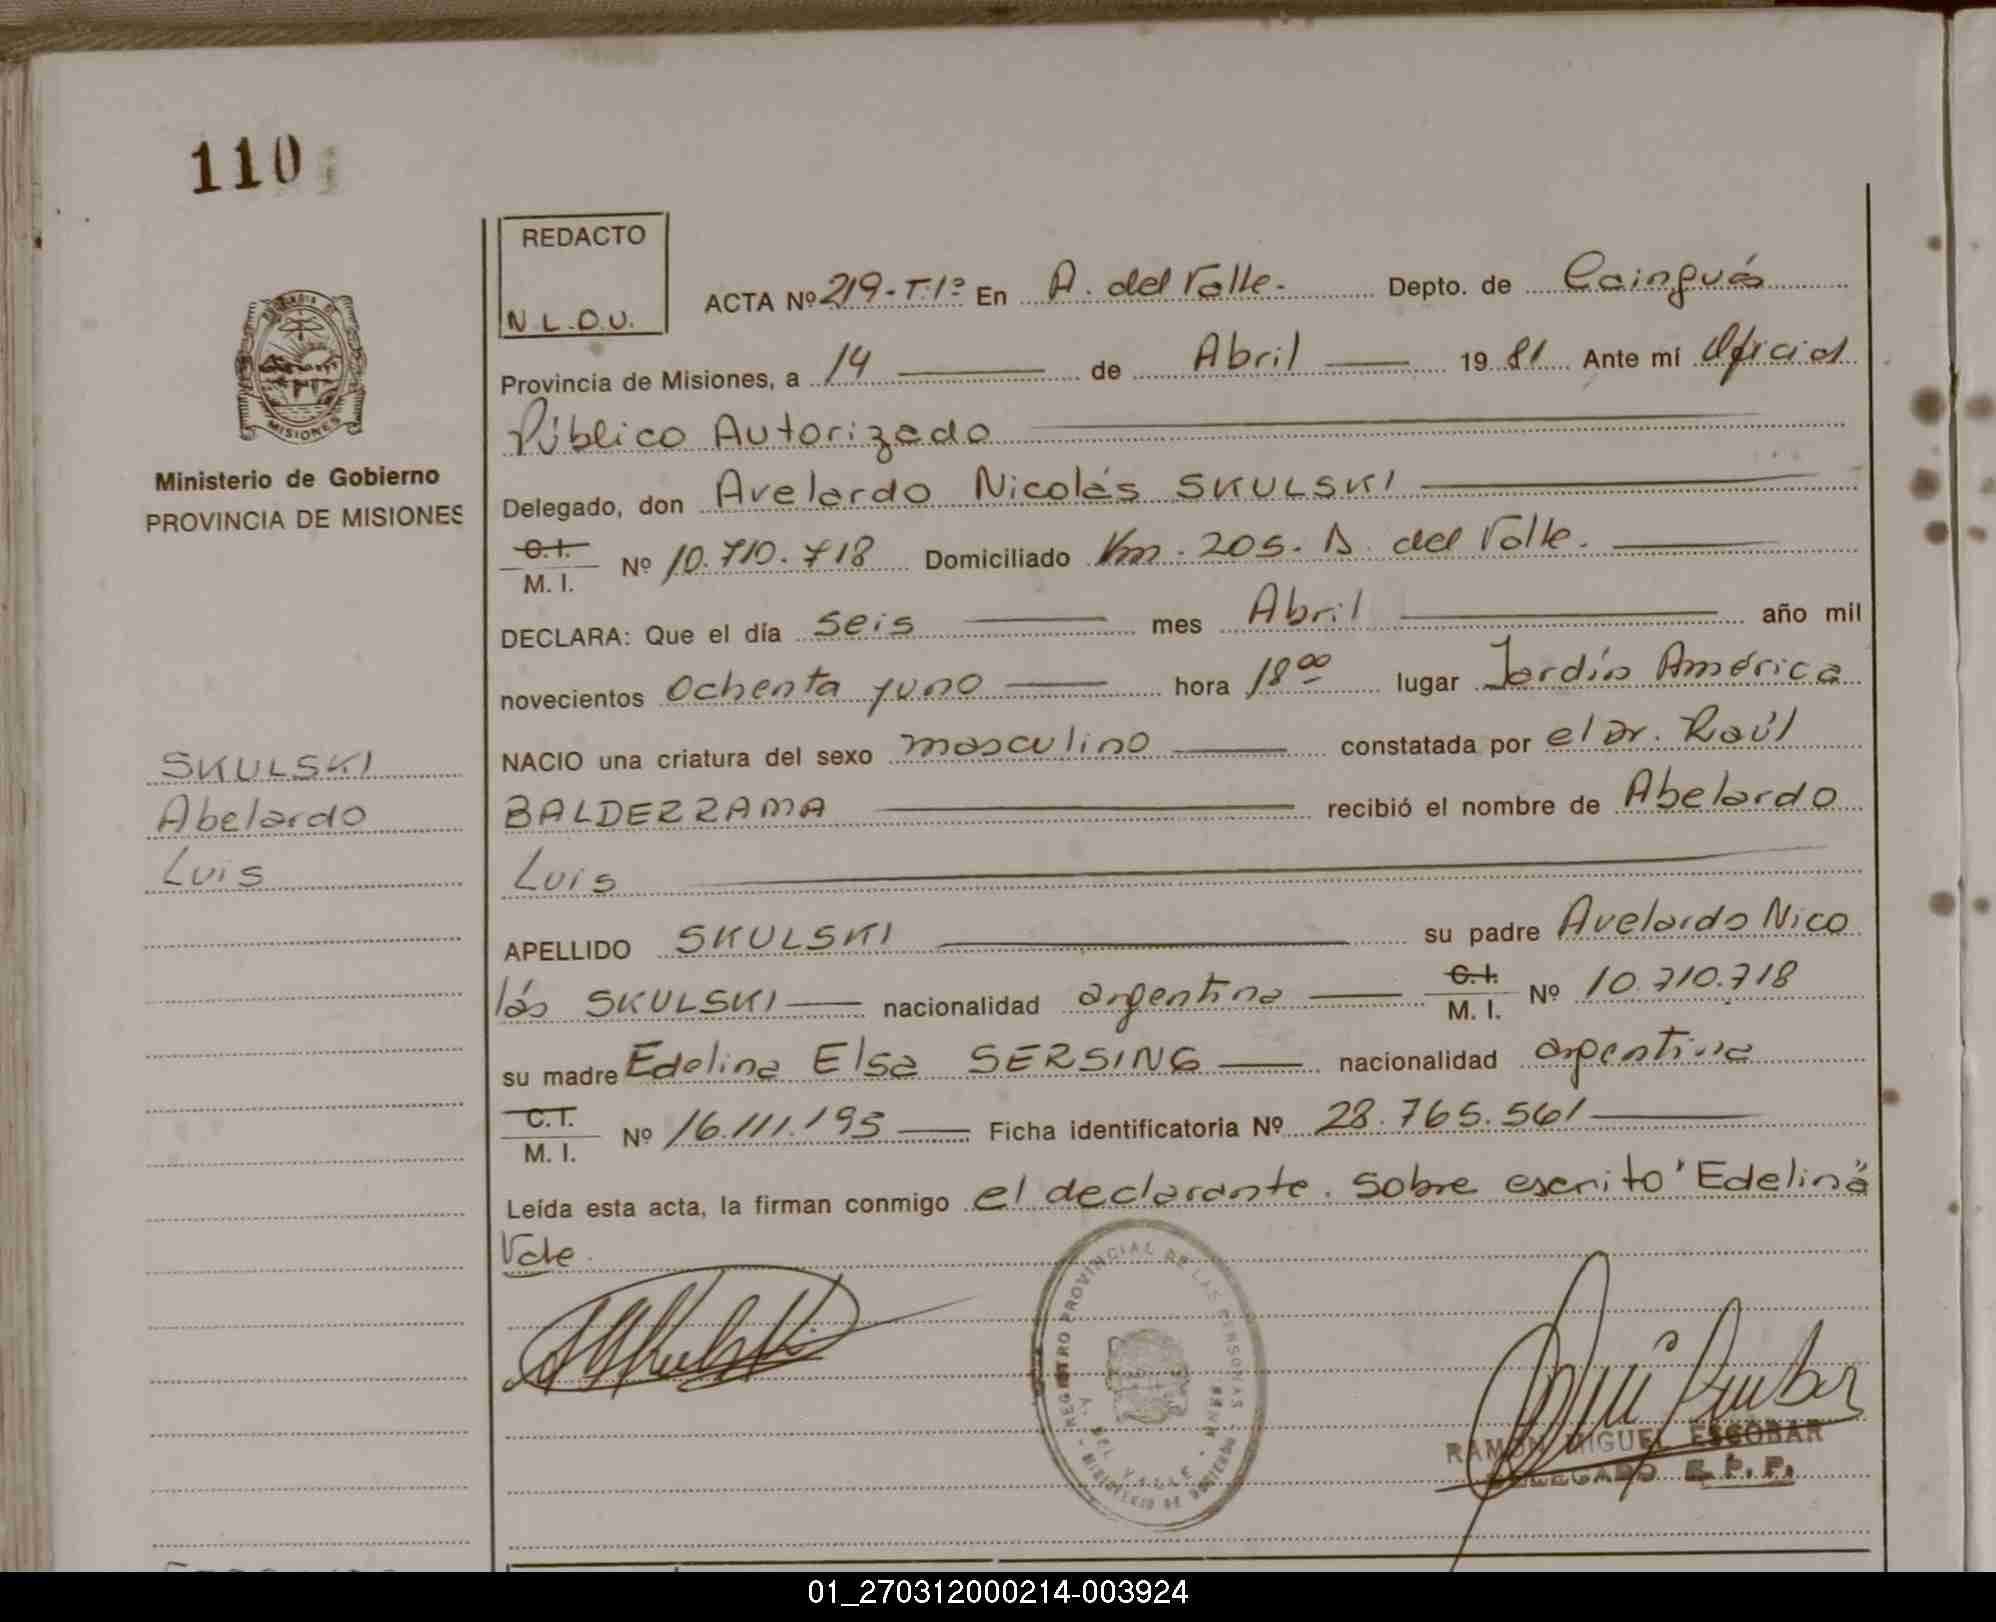 110
REDACTO
N.L.D.U.
ACTA Nº 219-T.1º En A. del Valle. Depto. de Cainguás
Provincia de Misiones, a 14 de Abril 1981 Ante mí Oficial
Público Autorizado
MISIONES
Ministerio de Gobierno
PROVINCIA DE MISIONES
Delegado, don Avelardo Nicolás SKULSKI
C.I.
M. I. Nº 10.710.718 Domiciliado Km. 205. A. del Valle.
DECLARA: Que el día seis mes Abril año mil
novecientos Ochenta y uno hora 18 00 lugar Jardín América
NACIO una criatura del sexo masculino constatada por el Dr. Raúl
BALDERRAMA recibió el nombre de Abelardo
Luis
SKULSKI
Abelardo
Luis
APELLIDO SKULSKI su padre Avelardo Nico
lás SKULSKI nacionalidad argentina C.I. M. I. Nº 10.710.718
su madre Edelina Elsa SERSING nacionalidad argentina
C.I.
M. I. Nº 16.111.195 Ficha identificatoria Nº 28.765.561
Leída esta acta, la firman conmigo el declarante. Sobre escrito "Edelina"
Vale.
REGISTRO PROVINCIAL DE LAS PERSONAS
A. DEL VALLE
MINISTERIO DE GOBIERNO
RAMON MIGUEL ESCOBAR
DELEGADO R.P.P.
01_270312000214-003924